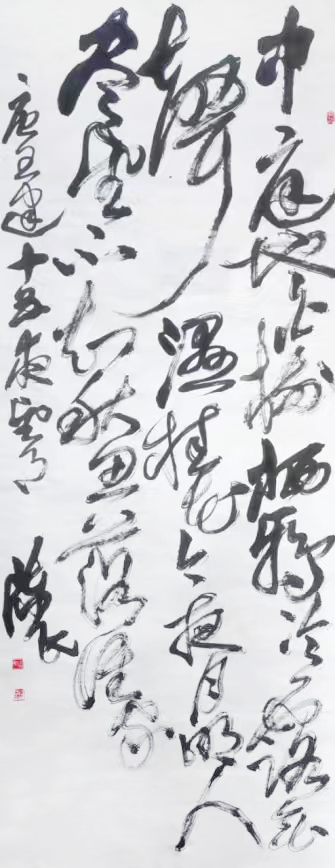 中庭地白树栖鸦冷露无
声湿桂花今夜月明人
尽望不知秋思落谁家
唐王建十五夜望月